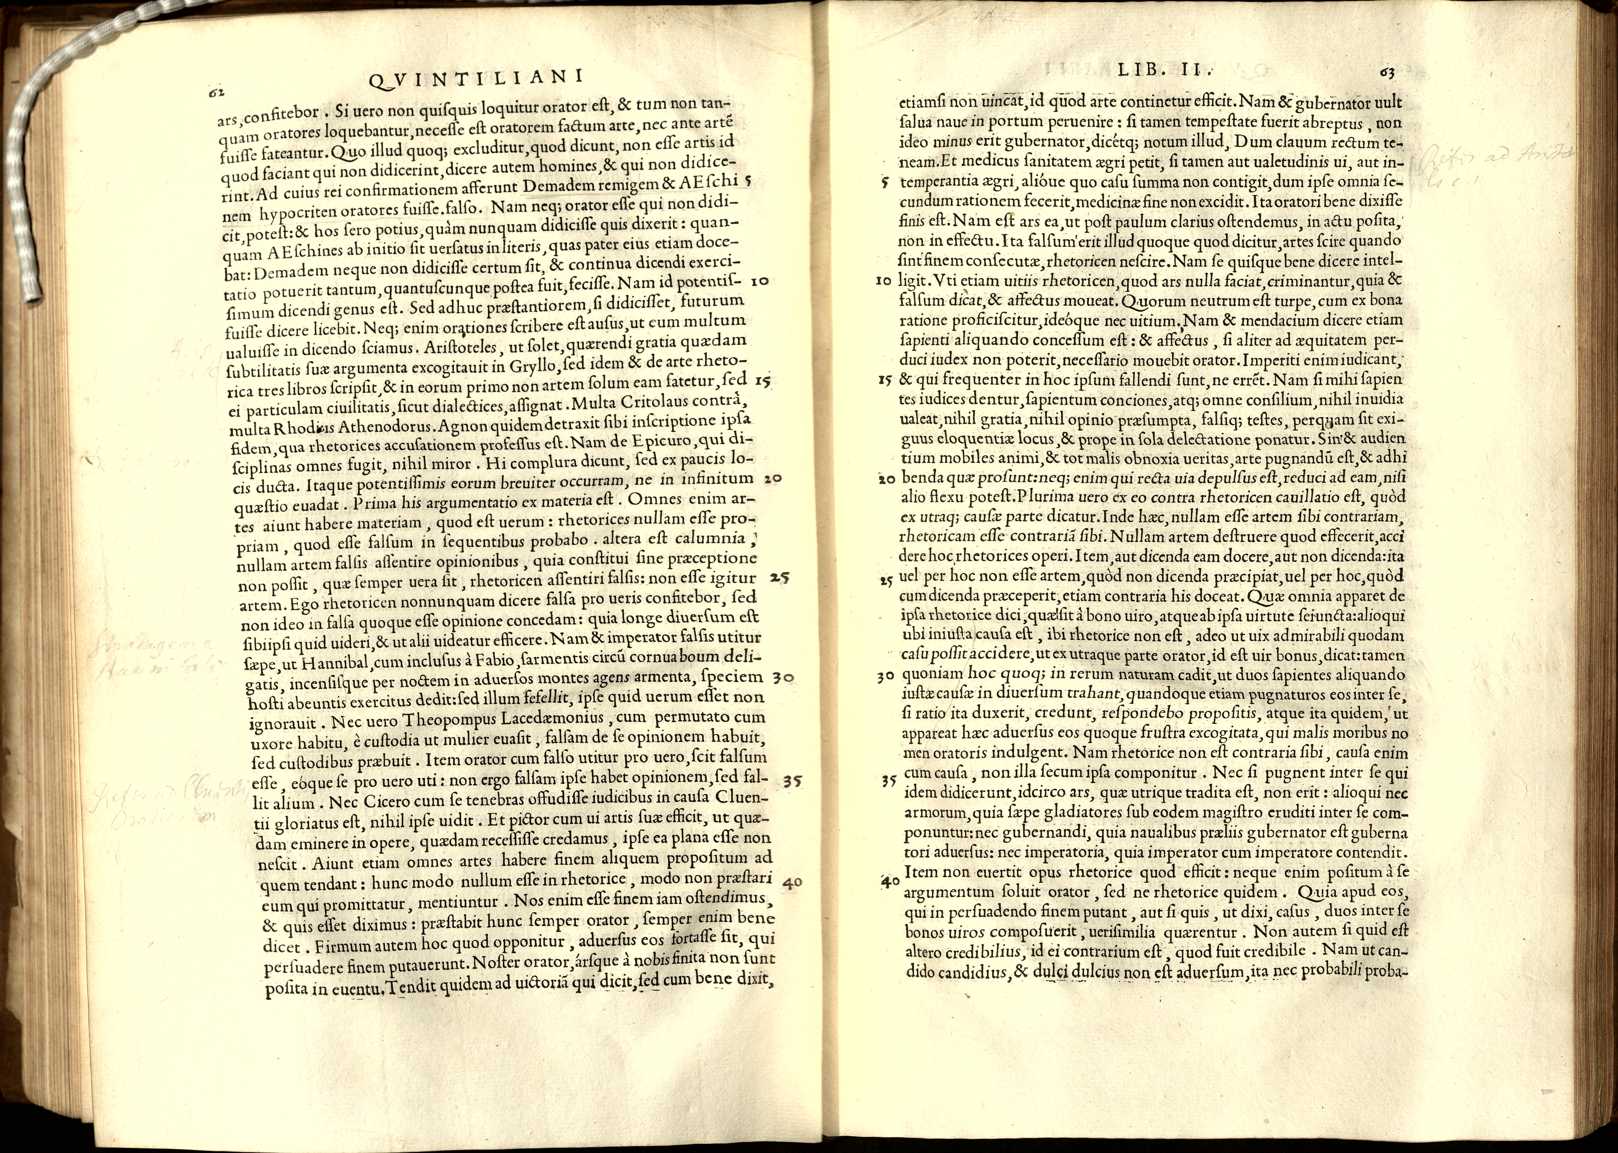 62
QVINTILIANI
ars, confitebor . Si uero non quiſquis loquitur orator eſt, & tum non tan-
quam oratores loquebantur, neceſſe eſt oratorem factum arte, nec ante artē
fuiſſe fateantur. Quo illud quoq; excluditur, quod dicunt, non eſſe artis id
quod faciant qui non didicerint, dicere autem homines, & qui non didice-
rint. Ad cuius rei confirmationem afferunt Demadem remigem & AEſchi 5
nem hypocriten oratores fuiſſe. falſo. Nam neq; orator eſſe qui non didi-
cit, poteſt: & hos ſero potius, quàm nunquam didiciſſe quis dixerit : quan-
quam AEſchines ab initio ſit uerſatus in literis, quas pater eius etiam doce-
bat: Demadem neque non didiciſſe certum ſit, & continua dicendi exerci-
tatio potuerit tantum, quantuſcunque poſtea fuit, feciſſe. Nam id potentiſ- 10
ſimum dicendi genus eſt. Sed adhuc præſtantiorem, ſi didiciſſet, futurum
fuiſſe dicere licebit. Neq; enim orationes ſcribere eſt auſus, ut eum multum
ualuiſſe in dicendo ſciamus. Ariſtoteles, ut ſolet, quærendi gratia quædam
ſubtilitatis ſuæ argumenta excogitauit in Gryllo, ſed idem & de arte rheto-
rica tres libros ſcripſit, & in eorum primo non artem ſolum eam fatetur, ſed 15
ei particulam ciuilitatis, ſicut dialectices, aſſignat . Multa Critolaus contrà,
multa Rhodius Athenodorus. Agnon quidem detraxit ſibi inſcriptione ipſa
fidem, qua rhetorices accuſationem profeſſus eſt. Nam de Epicuro, qui di-
ſciplinas omnes fugit, nihil miror . Hi complura dicunt, ſed ex paucis lo-
cis ducta. Itaque potentiſſimis eorum breuiter occurram, ne in infinitum 20
quæſtio euadat . Prima his argumentatio ex materia eſt . Omnes enim ar-
tes aiunt habere materiam , quod eſt uerum : rhetorices nullam eſſe pro-
priam , quod eſſe falſum in ſequentibus probabo . altera eſt calumnia ,
nullam artem falſis aſſentire opinionibus , quia conſtitui ſine præceptione
non poſſit , quæ ſemper uera ſit , rhetoricen aſſentiri falſis: non eſſe igitur 25
artem. Ego rhetoricen nonnunquam dicere falſa pro ueris confitebor, ſed
non ideo in falſa quoque eſſe opinione concedam: quia longe diuerſum eſt
ſibiipſi quid uideri, & ut alii uideatur efficere. Nam & imperator falſis utitur
ſæpe, ut Hannibal, cum incluſus à Fabio, ſarmentis circū cornua boum deli-
gatis, incenſiſque per noctem in aduerſos montes agens armenta, ſpeciem 30
hoſti abeuntis exercitus dedit: ſed illum fefellit, ipſe quid uerum eſſet non
ignorauit . Nec uero Theopompus Lacedæmonius , cum permutato cum
uxore habitu, è cuſtodia ut mulier euaſit , falſam de ſe opinionem habuit,
ſed cuſtodibus præbuit . Item orator cum falſo utitur pro uero, ſcit falſum
eſſe , eóque ſe pro uero uti : non ergo falſam ipſe habet opinionem, ſed fal- 35
lit alium . Nec Cicero cum ſe tenebras offudiſſe iudicibus in cauſa Cluen-
tii gloriatus eſt, nihil ipſe uidit . Et pictor cum ui artis ſuæ efficit, ut quæ-
dam eminere in opere, quædam receſſiſſe credamus , ipſe ea plana eſſe non
neſcit . Aiunt etiam omnes artes habere finem aliquem propoſitum ad
quem tendant : hunc modo nullum eſſe in rhetorice , modo non præſtari 40
eum qui promittatur, mentiuntur . Nos enim eſſe finem iam oſtendimus,
& quis eſſet diximus : præſtabit hunc ſemper orator , ſemper enim bene
dicet . Firmum autem hoc quod opponitur , aduerſus eos fortaſſe ſit, qui
perſuadere finem putauerunt. Noſter orator, árſque à nobis finita non ſunt
poſita in euentu. Tendit quidem ad uictoriā qui dicit, ſed cum bene dixit,
LIB. II.
63
etiamſi non uincat, id quod arte continetur efficit. Nam & gubernator uult
ſalua naue in portum peruenire : ſi tamen tempeſtate fuerit abreptus , non
ideo minus erit gubernator, dicétq; notum illud, Dum clauum rectum te-
neam. Et medicus ſanitatem ægri petit, ſi tamen aut ualetudinis ui, aut in-
5 temperantia ægri, alióue quo caſu ſumma non contigit, dum ipſe omnia ſe-
cundum rationem fecerit, medicinæ fine non excidit. Ita oratori bene dixiſſe
finis eſt. Nam eſt ars ea, ut poſt paulum clarius oſtendemus, in actu poſita,
non in effectu. Ita falſum erit illud quoque quod dicitur, artes ſcire quando
ſint finem conſecutæ, rhetoricen neſcire. Nam ſe quiſque bene dicere intel-
10 ligit. Vti etiam uitiis rhetoricen, quod ars nulla faciat, criminantur, quia &
falſum dicat, & affectus moueat. Quorum neutrum eſt turpe, cum ex bona
ratione proficiſcitur, ideóque nec uitium. Nam & mendacium dicere etiam
ſapienti aliquando conceſſum eſt : & affectus , ſi aliter ad æquitatem per-
duci iudex non poterit, neceſſario mouebit orator. Imperiti enim iudicant,
15 & qui frequenter in hoc ipſum fallendi ſunt, ne errēt. Nam ſi mihi ſapien
tes iudices dentur, ſapientum conciones, atq; omne conſilium, nihil inuidia
ualeat, nihil gratia, nihil opinio præſumpta, falſiq; teſtes, perquam ſit exi-
guus eloquentiæ locus, & prope in ſola delectatione ponatur. Sin & audien
tium mobiles animi, & tot malis obnoxia ueritas, arte pugnandū eſt, & adhi
20 benda quæ proſunt: neq; enim qui recta uia depulſus eſt, reduci ad eam, niſi
alio flexu poteſt. Plurima uero ex eo contra rhetoricen cauillatio eſt, quòd
ex utraq; cauſæ parte dicatur. Inde hæc, nullam eſſe artem ſibi contrariam,
rhetoricam eſſe contrariā ſibi. Nullam artem deſtruere quod effecerit, acci
dere hoc rhetorices operi. Item, aut dicenda eam docere, aut non dicenda: ita
25 uel per hoc non eſſe artem, quòd non dicenda præcipiat, uel per hoc, quòd
cum dicenda præceperit, etiam contraria his doceat. Quæ omnia apparet de
ipſa rhetorice dici, quæ ſit à bono uiro, atque ab ipſa uirtute ſeiuncta: alioqui
ubi iniuſta cauſa eſt , ibi rhetorice non eſt , adeo ut uix admirabili quodam
caſu poſſit accidere, ut ex utraque parte orator, id eſt uir bonus, dicat: tamen
30 quoniam hoc quoq; in rerum naturam cadit, ut duos ſapientes aliquando
iuſtæ cauſæ in diuerſum trahant, quandoque etiam pugnaturos eos inter ſe,
ſi ratio ita duxerit, credunt, reſpondebo propoſitis, atque ita quidem, ut
appareat hæc aduerſus eos quoque fruſtra excogitata, qui malis moribus no
men oratoris indulgent. Nam rhetorice non eſt contraria ſibi , cauſa enim
35 cum cauſa , non illa ſecum ipſa componitur . Nec ſi pugnent inter ſe qui
idem didicerunt, idcirco ars, quæ utrique tradita eſt, non erit : alioqui nec
armorum, quia ſæpe gladiatores ſub eodem magiſtro eruditi inter ſe com-
ponuntur: nec gubernandi, quia naualibus præliis gubernator eſt guberna
tori aduerſus: nec imperatoria, quia imperator cum imperatore contendit.
40 Item non euertit opus rhetorice quod efficit: neque enim poſitum à ſe
argumentum ſoluit orator , ſed ne rhetorice quidem . Quia apud eos,
qui in perſuadendo finem putant , aut ſi quis , ut dixi, caſus , duos inter ſe
bonos uiros compoſuerit , ueriſimilia quærentur . Non autem ſi quid eſt
altero credibilius, id ei contrarium eſt , quod fuit credibile . Nam ut can-
dido candidius, & dulci dulcius non eſt aduerſum, ita nec probabili proba-